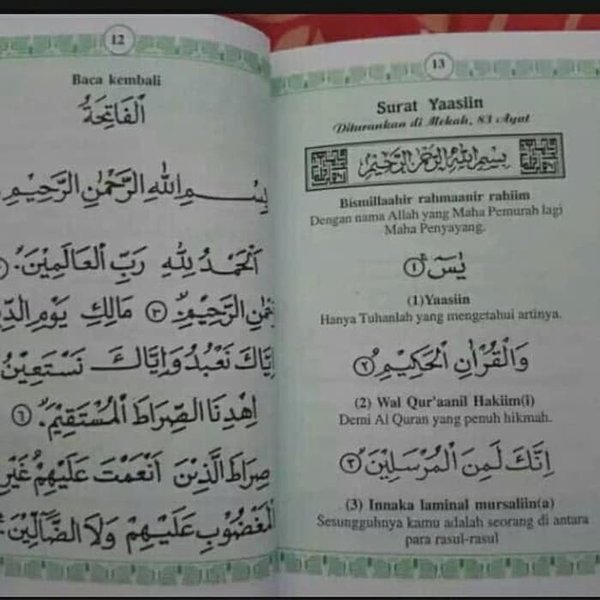 12
Baca kembali
الْفَاتِحَةُ
بِسْمِ اللهِ الرَّحْمٰنِ الرَّحِيْمِ
اَلْحَمْدُ لِلّٰهِ رَبِّ الْعَالَمِيْنَ
الرَّحِيْمِ ۝٣ مَالِكِ يَوْمِ
اِيَّاكَ نَعْبُدُ وَاِيَّاكَ نَسْتَعِيْنُ
اِهْدِنَا الصِّرَاطَ الْمُسْتَقِيْمَ ۝٦
صِرَاطَ الَّذِيْنَ اَنْعَمْتَ عَلَيْهِمْ غَيْرِ
الْمَغْضُوْبِ عَلَيْهِمْ وَلَا الضَّآلِّيْنَ
13
Surat Yaasiin
Diturunkan di Mekah, 83 Ayat
بِسْمِ اللهِ الرَّحْمٰنِ الرَّحِيْمِ
Bismillaahir rahmaanir rahiim
Dengan nama Allah yang Maha Pemurah lagi
Maha Penyayang.
يٰسٓ ۝١
(1)Yaasiin
Hanya Tuhanlah yang mengetahui artinya.
وَالْقُرْاٰنِ الْحَكِيْمِ ۝٢
(2) Wal Qur'aanil Hakiim(i)
Demi Al Quran yang penuh hikmah.
اِنَّكَ لَمِنَ الْمُرْسَلِيْنَ ۝٣
(3) Innaka laminal mursaliin(a)
Sesungguhnya kamu adalah seorang di antara
para rasul-rasul